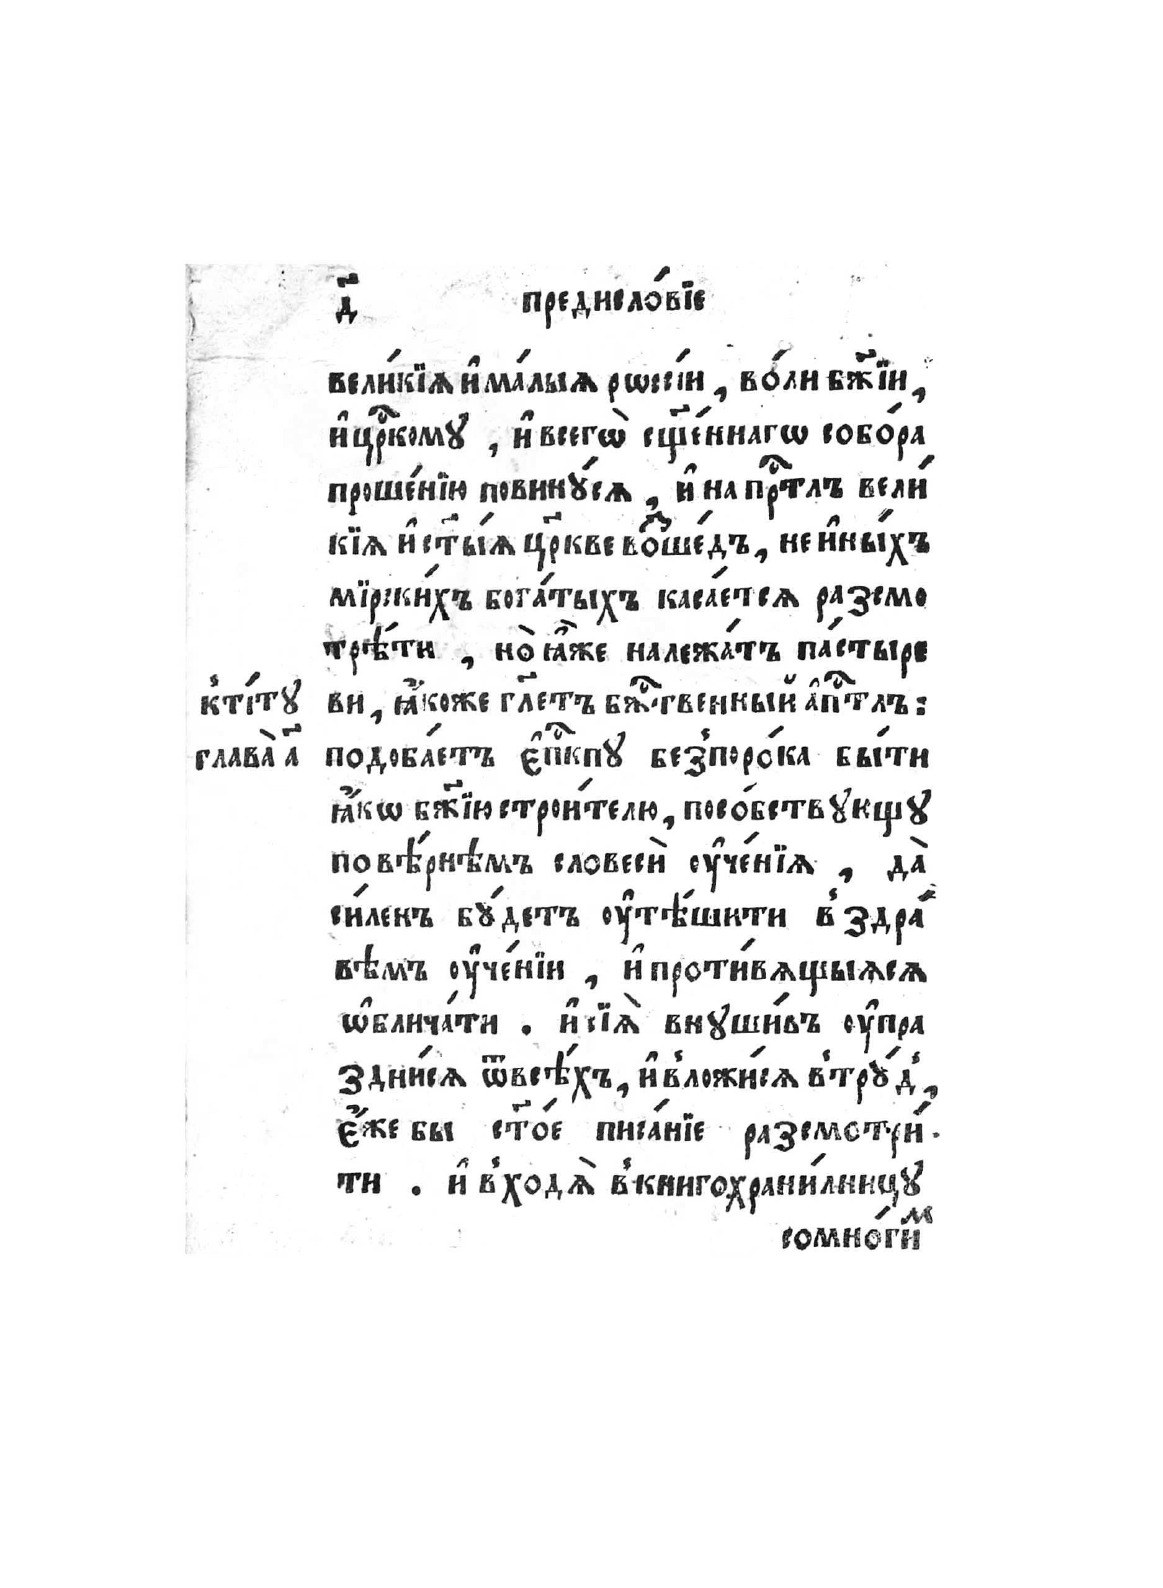 д҃ предисло́вїе
вели́кїѧ и҆ ма́лыѧ рѡссі́и, во́ли бж҃їи,
и҆ цр҇ко́мꙋ, и҆ всегѡ̀ сщ҃е́ннагѡ собо́ра
проше́нїю повинꙋ́сѧ, и҆ на пр҇тлъ вели́
кїѧ и҆ ст҃ы́ѧ цр҃кве во́ⷲше́дъ, не и҆ны́хъ
мїрски́хъ бога́тыхъ каса́етсѧ разсмо
трѣ́ти, но̀ ꙗ҆̀же належа́тъ па́стыре
к̾ті́тꙋ ви, ꙗ҆́коже гл҃етъ бж҇твенный а҆п҇тлъ:
глава̀ а҃ подоба́етъ є҆п҇кпꙋ без̾поро́ка бы́ти
ꙗ҆́кѡ бж҃їю строи́телю, посо́бствꙋющꙋ
по вѣ́рнѣмъ словесѝ оу҆че́нїѧ, да̀
си́ленъ бꙋ́детъ оу҆тѣ́шити в̾здра́
вѣмъ оу҆че́нїи, и҆ проти́вѧщыѧсѧ
ѡ҆блича́ти. и҆ сїѧ̀ внꙋши́въ оу҆пра
здни́сѧ ѿ всѣ́хъ, и҆ в̾ложи́сѧ в̾трꙋ́д̾,
є҆́же бы ст҃о́е писа́нїе разсмотри́
ти. и҆ в̾ходѧ̀ в̾книгохрани́лницꙋ
со мно́гиⷨ